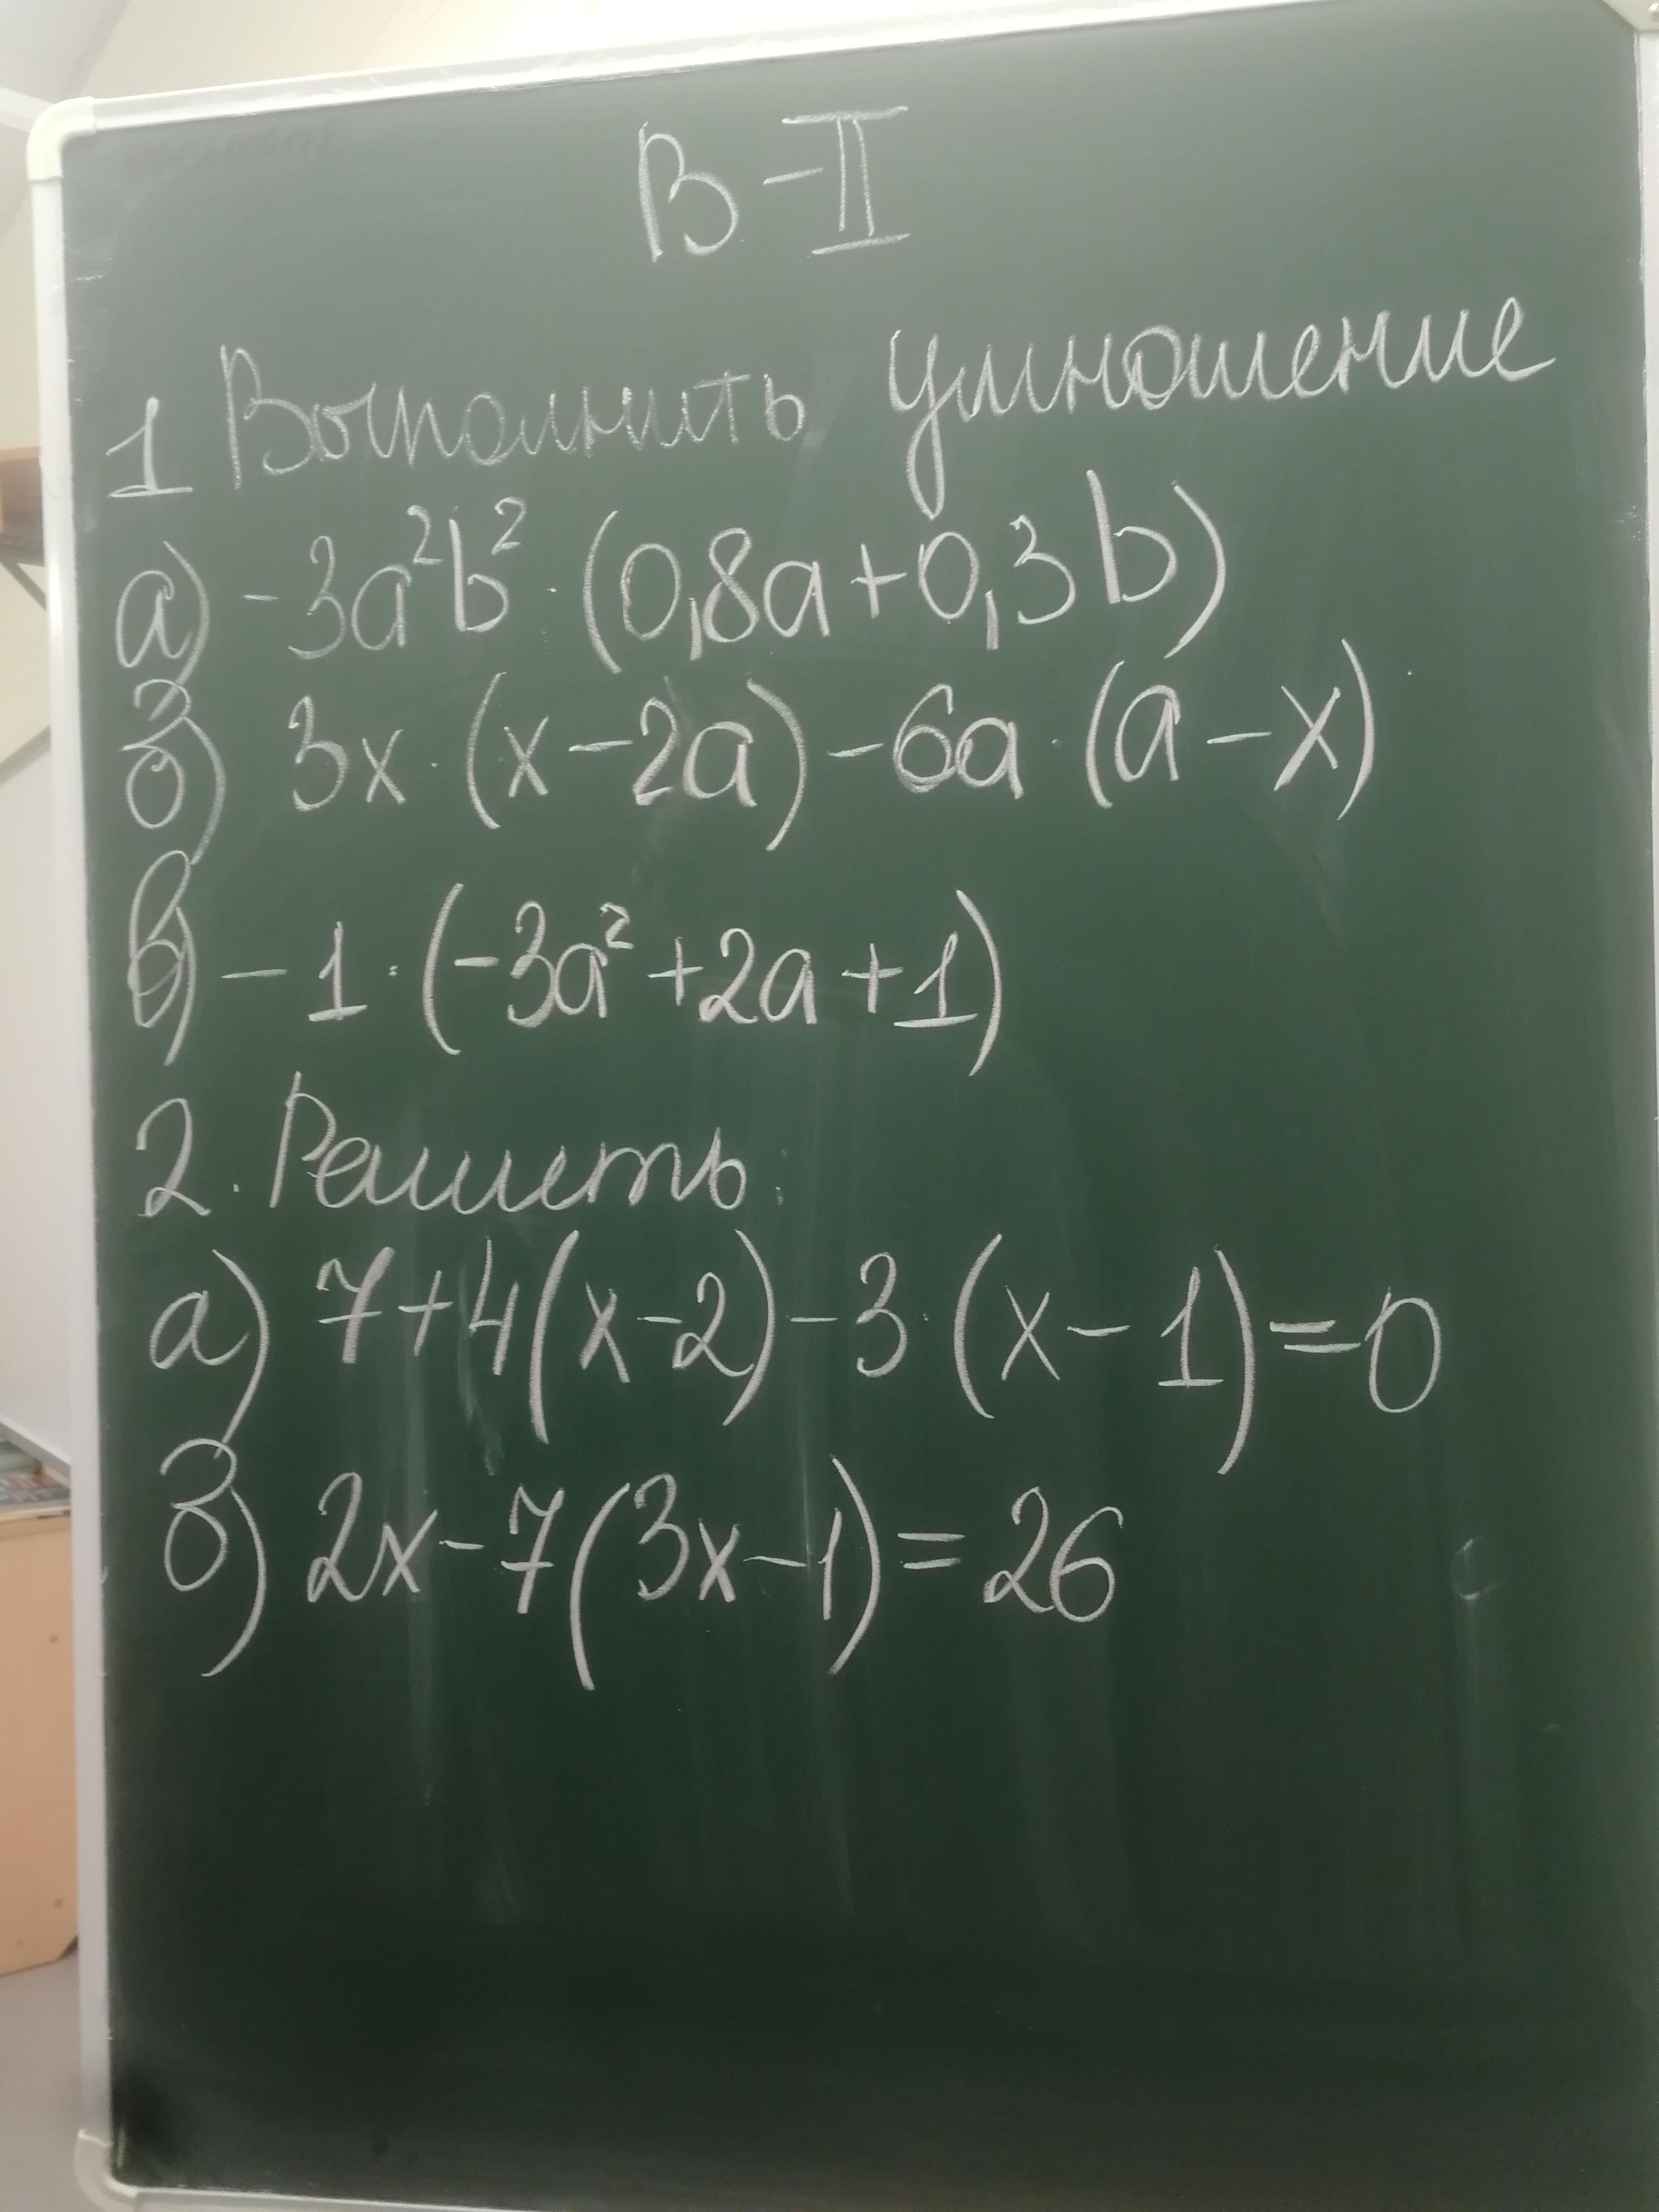 В-II
1 Выполнить умножение
а) -3a²b² · (0,8a+0,3b)
б) 3x · (x-2a) - 6a · (a-x)
в) -1 · (-3a²+2a+1)
2. Решить:
а) 7+4(x-2)-3·(x-1)=0
б) 2x-7(3x-1)=26